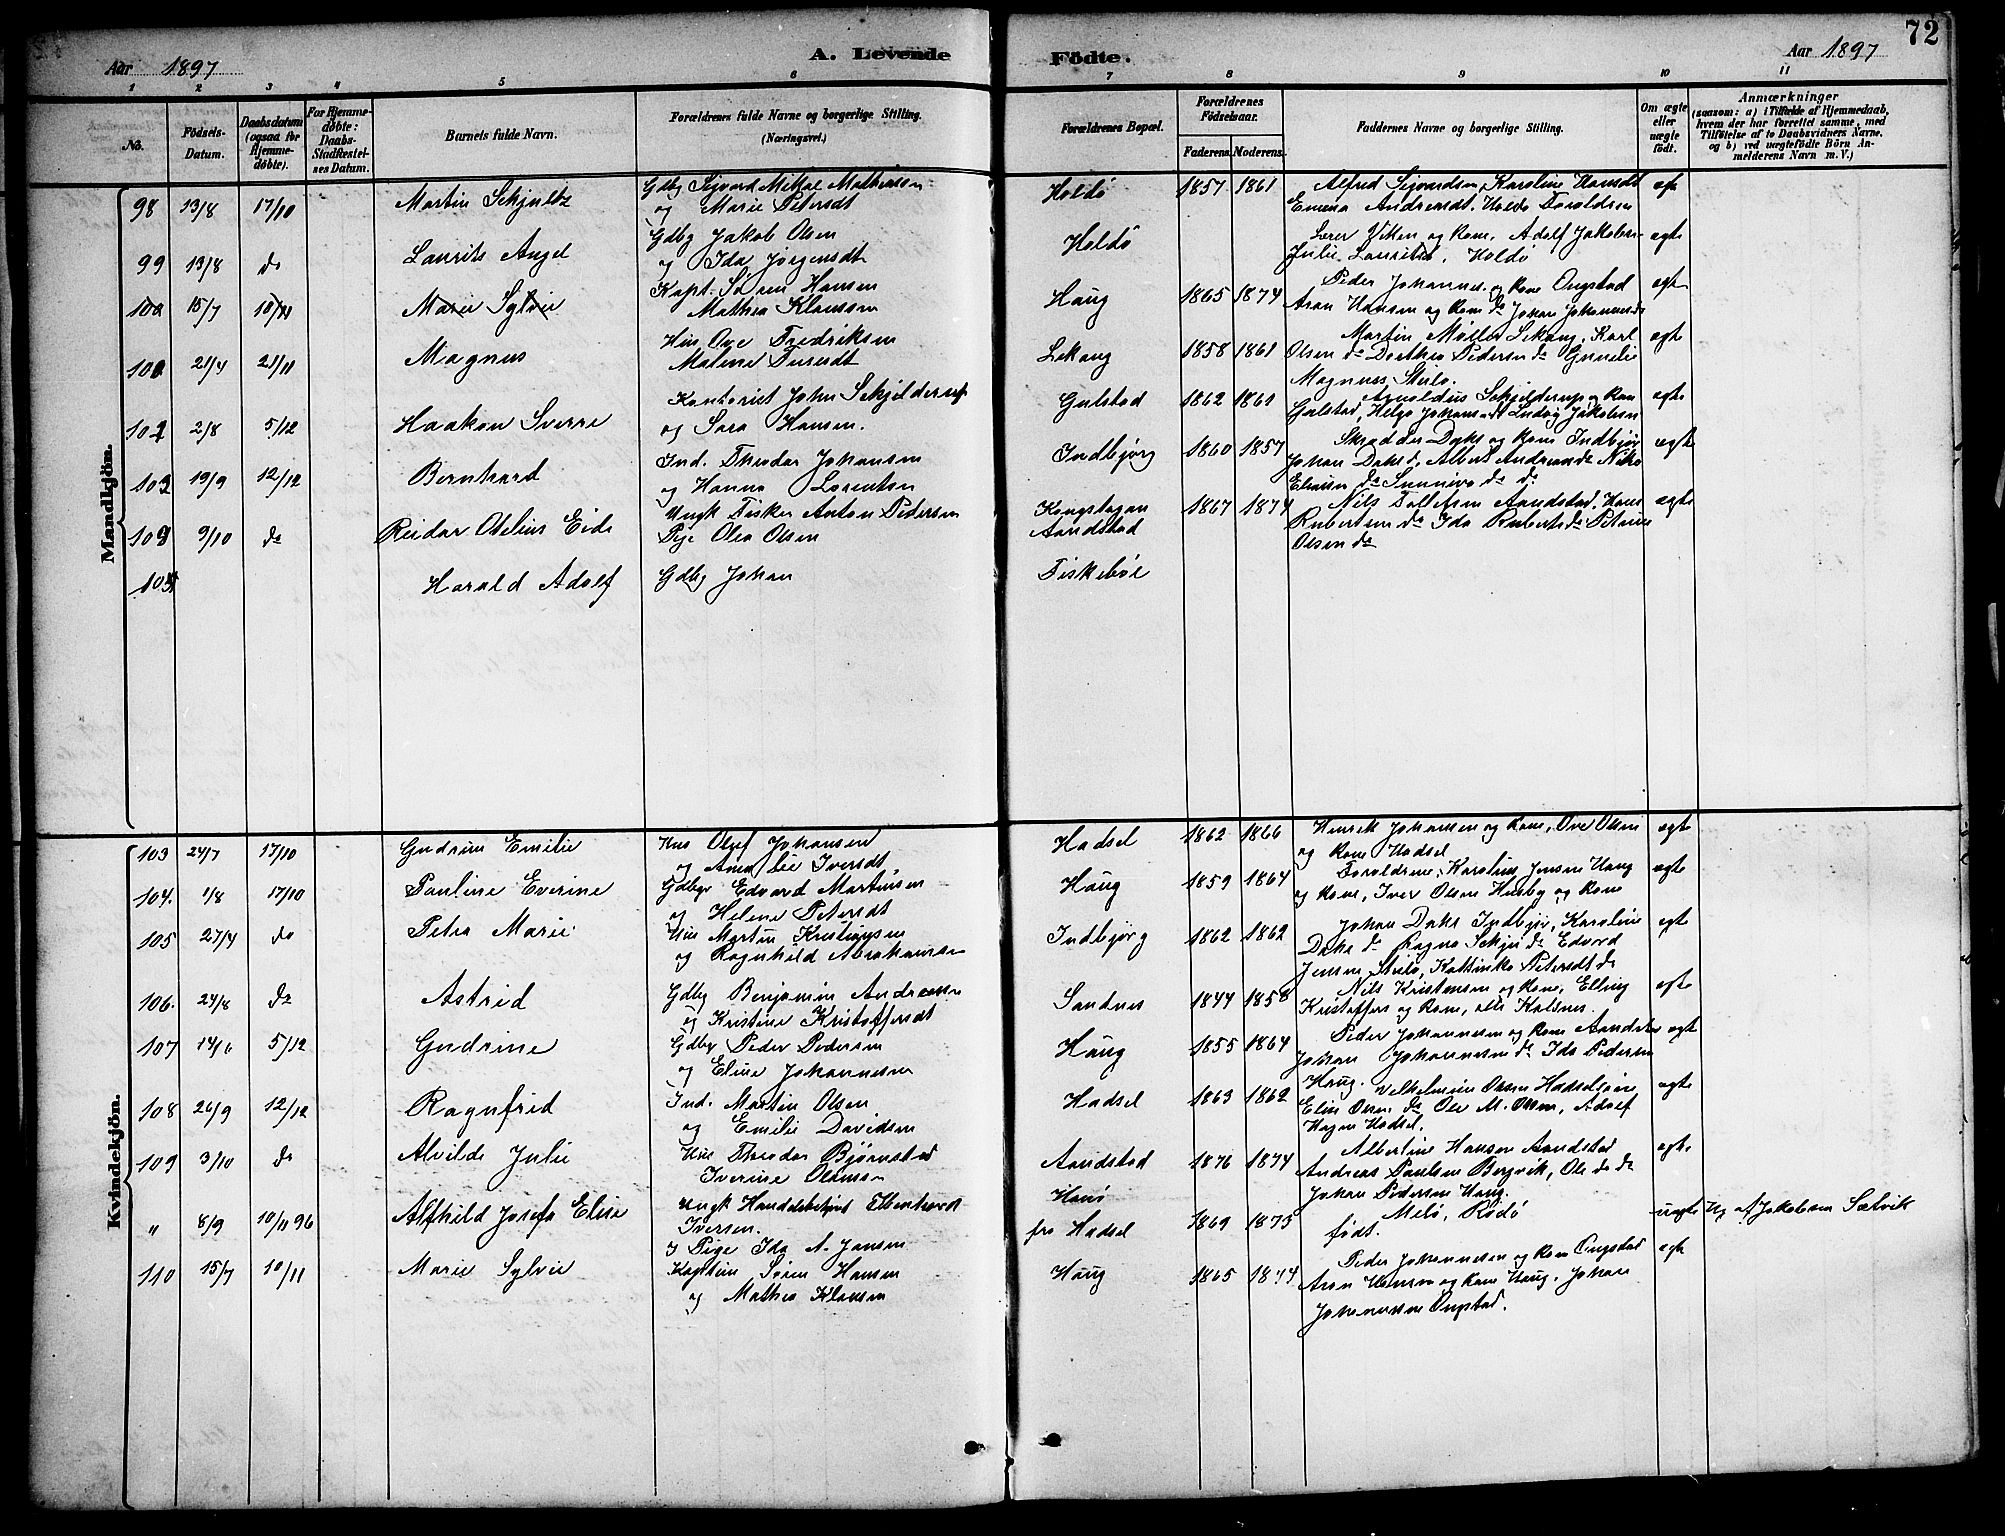 72
Aar 1897
A. Levende Födte.
Aar 1897
1 2 3 4 5 6 7 8 9 10 11
No.
Födsels-Datum.
Daabsdatum (ogsaa for Hjemme-döbte).
For Hjemme-döbte: Daabs-Stadfæstel-ses Datum.
Barnets fulde Navn.
Forældrenes fulde Navne og borgerlige Stilling. (Næringsvei.)
Forældrenes Bopæl.
Forældrenes Födselsaar.
Faderens. Moderens.
Faddernes Navne og borgerlige Stilling.
Om ægte eller uægte födt.
Anmærkninger
(saasom: a) i Tilfælde af Hjemmedaab, hvem der har forrettet samme, med Tilföielse af to Daabsvidners Navne. og b) ved uægtefödte Börn An-melderens Navn m. V.)
Mandkjön.
98 13/8 17/10 Martin Schjultz Gdbg Sigvard Mikal Mathisen
og Marie Petersdt Holdö 1857 1861 Alfred Sigvardsen, Karoline Hansdt
Emma Andreasdt. Holdö Forældrene egte
99 13/8 do Laurits Angel Gdbg Jakob Olsen
og Ida Jörgensdt Holdö Lærer Viken og Kone, Adolf Jakobsen
Julie Lauritsd, Holdö egte
100 15/7 10/11 Marie Sylvie Kapt. Sören Hansen
Mathea Klaussen Haug 1865 1874 Peder Johannes. og Kone Ongstad
Aron Hansen og Kone do Johan Johannesen do egte
100 21/4 21/11 Magnus Hus Ove Fredriksen
Malene Lekang 1858 1861 Martin Möller Lekang, Karl
Olsen do Dorthea Pedersen do
Magnus Steilo. egte
102 2/8 5/12 Haakon Sverre Kontorist John Schjelderup
og Sara Hansen. Gulstad 1862 1861 Arnoldus Schjelderup og Kone
Gulstad, Helga Johansdt Ludvig Jakobsen egte
103 19/9 12/12 Bernhard Ind. Theodor Johansen
og Hanna Lorentsen Indbjörg 1860 1857 Skrædder Daks og Kone Indbjör
Johan Daks do, Albert Andreasen do
do Sunniva do do egte
103 9/10 do Reidar Otelius Eide Ungk Fisker Anton Pedersen
Pige Olea Olsen
Aandstad 1867 1874 Nils Tollefsen Aandstad, Hans
Rubertsen do Ida Ruberts do Petrine
Olsen do egte
104 Harald Adolf Gdbg Johan Fiskeböl
Kvindekjön.
103 24/7 17/10 Gudrun Emilie Hus Oluf Johansen
og Iversdt, Hadsel 1862 1866 Henrik Johansen og Kone, Ove Olsen
og Kone Hadsel egte
104. 1/8 17/10 Pauline Everine Gdbgr Edvard Martinsen
og Helene Petersdt Haug 1859 1864 Forældrene, Karolius Jensen Haug
og Kone, Iver Olsen Husby og Kone egte
105 27/4 do Petra Marie Hus Martin Kristiansen
og Ragnhild Abrahamsen Indbjörg 1862 1862 Johan Daks Indbjör, Karoline
Daks do Ragna Schjei do Edvard
Jensen Steilo, Kattinka Petersdt do egte
106. 24/8 do Astrid Gdbg Benjamin Andreasen
og Kristine Kristoffersdt Sandnes 1844 1858 Nils Kristensen og Kone, Elling
Kristoffers og Kone, alle Kaldnes. egte
107 14/6 5/12 Gudrine Gdbgr Peder Pedersen
og Eline Johannesen Haug 1855 1864 Peder Johannesen og Kone Aandstad
Johan Johannesen do Ida Pedersen
Haug. egt
108 26/9 12/12 Ragnfrid Ind. Martin Olsen
og Emilie Davidsen Hadsel 1863 1862 Vilhelmine Olsen Hadselöen
Elise Olsen do Ole M. Olsen, Adolf
Hagen Hadsel. egte
109 3/10 do Alvilde Julie Hus Theodor Björnstad
Iverine Olsensen Aandstad 1876 1874 Albertine Hansen Aandstad
Andreas Paulsen Bergvik, Ole do do
Johan Pedersen Haug. egte
" 8/9 10/11 96 Alfhild Josefa Elise Ungk Handelsbetjent
Iversen.
Pige Ida A. Jansen
fra Hadsel 1869 1873 Melö, Rödö
födt. uegte Ug. af Jakobsen Sætvik
110 15/7 10/11 Marie Sylvie Kaptein Sören Hansen
og Mathea Klausen Haug 1865 1874 Peder Johannesen og Kone Ongstad
Aron Hansen og Kone Haug, Johan
Johannesen Ongstad. egte